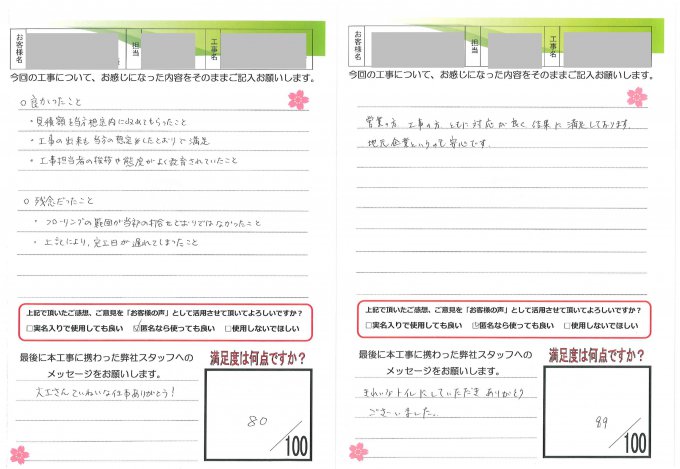 お客様名
担当
工事名
今回の工事について、お感じになった内容をそのままご記入お願いします。
○良かったこと
・見積額を当方想定内に収めてもらったこと
・工事の出来も当方の想定したとおりで満足
・工事担当者の挨拶や態度がよく教育されていたこと
○残念だったこと
・フローリングの範囲が当初の打合せどおりではなかったこと
・上記により、完工日が遅れてしまったこと
上記で頂いたご感想、ご意見を「お客様の声」として活用させて頂いてよろしいですか？
□実名入りで使用しても良い ☑匿名なら使っても良い □使用しないでほしい
最後に本工事に携わった弊社スタッフへの
メッセージをお願いします。
大工さんていねいな仕事ありがとう！
満足度は何点ですか?
80
/100
お客様名
担当
工事名
今回の工事について、お感じになった内容をそのままご記入お願いします。
営業の方 工事の方 ともに対応が良く 結果に満足しております
地元企業というのも安心です。
上記で頂いたご感想、ご意見を「お客様の声」として活用させて頂いてよろしいですか？
□実名入りで使用しても良い ☑匿名なら使っても良い □使用しないでほしい
最後に本工事に携わった弊社スタッフへの
メッセージをお願いします。
きれいなトイレにしていただき ありがとう
ございました。
満足度は何点ですか?
/100